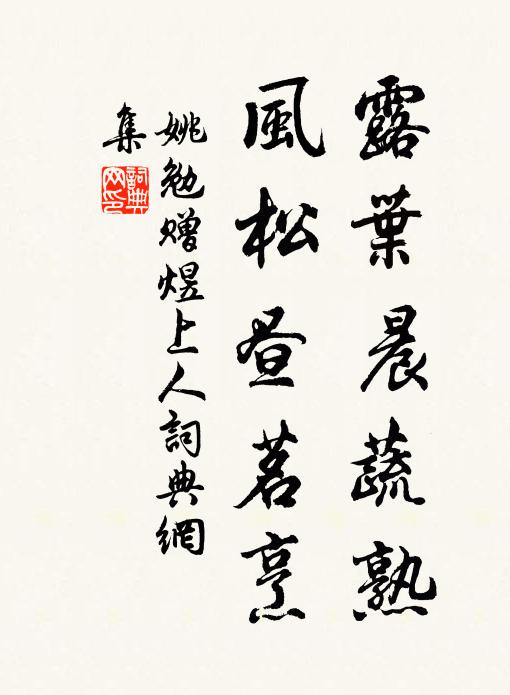 露葉晨蔬熟
風松昼茗烹
姚勉赠煜上人詞典網
集
詞典
网印